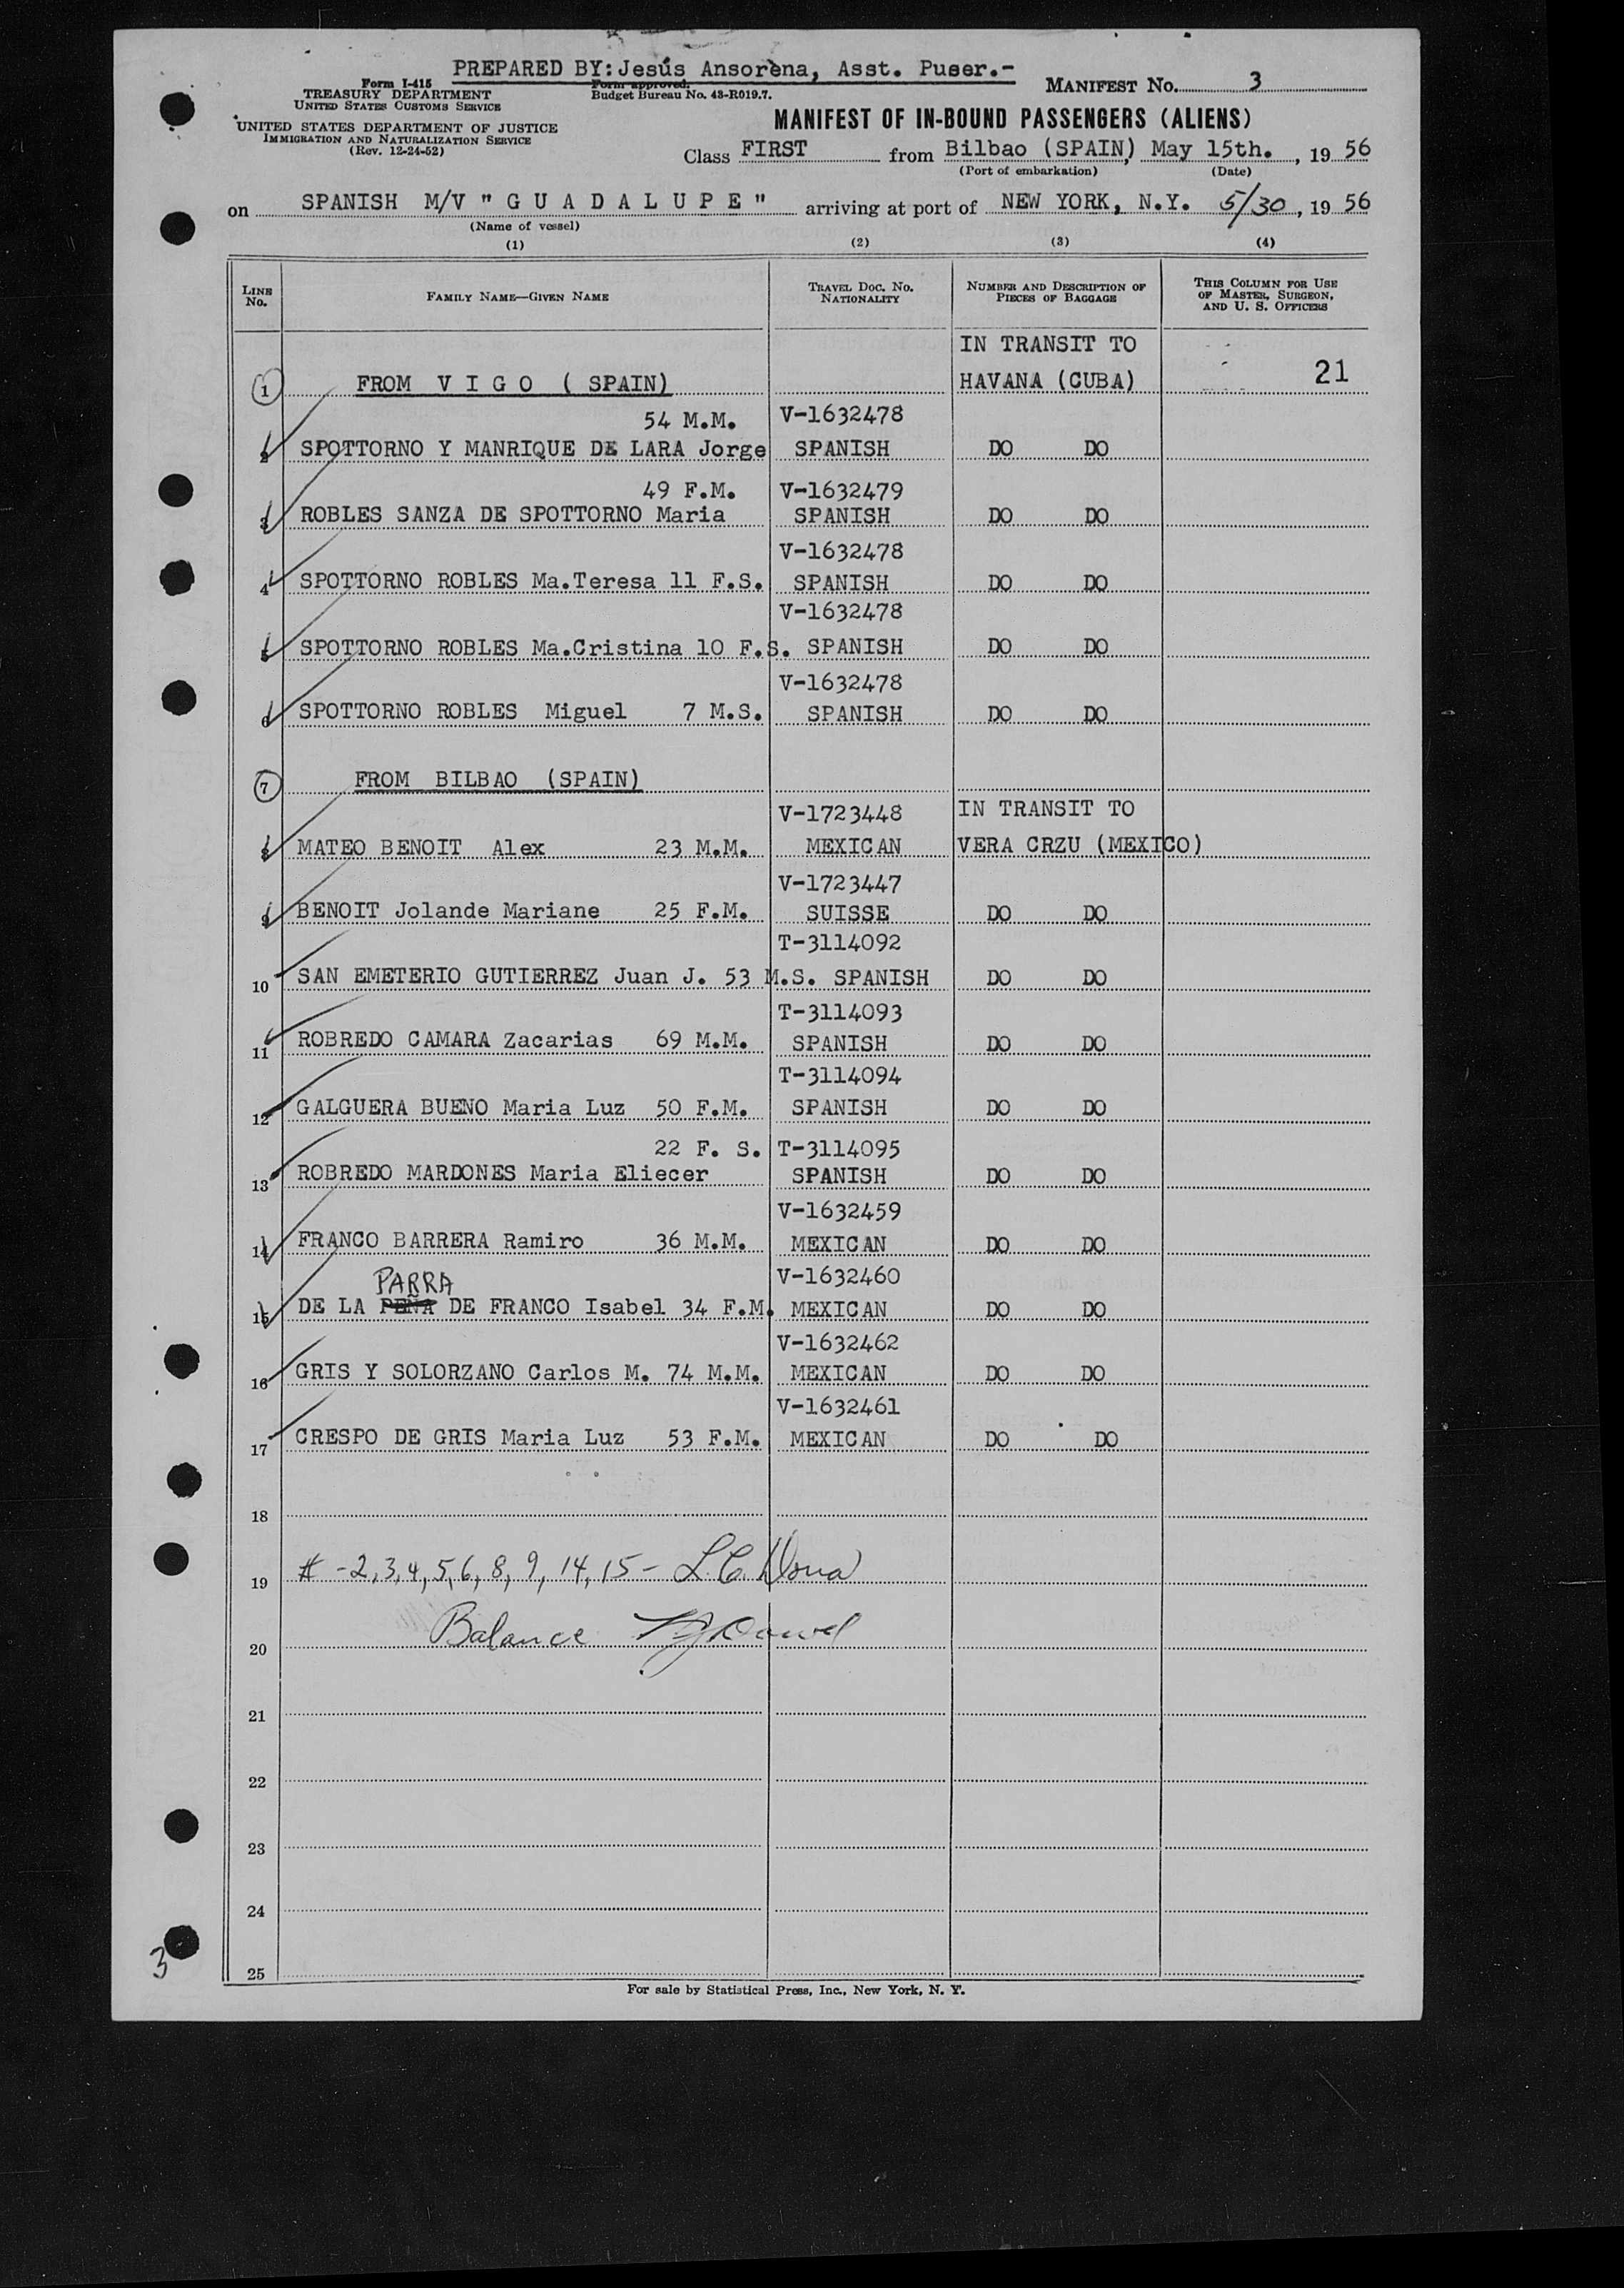 PREPARED BY: Jesús Ansorena, Asst. Puser.-
Form I-415
TREASURY DEPARTMENT
UNITED STATES CUSTOMS SERVICE
Form approved.
Budget Bureau No. 43-R019.7.
MANIFEST No. 3
UNITED STATES DEPARTMENT OF JUSTICE
IMMIGRATION AND NATURALIZATION SERVICE
(Rev. 12-24-52)
MANIFEST OF IN-BOUND PASSENGERS (ALIENS)
Class FIRST from Bilbao (SPAIN), May 15th., 19 56
(Port of embarkation) (Date)
on SPANISH M/V "GUADALUPE" arriving at port of NEW YORK, N.Y. 5/30, 19 56
(Name of vessel)
(1) (2) (3) (4)
LINE No. FAMILY NAME—GIVEN NAME TRAVEL DOC. NO. NATIONALITY NUMBER AND DESCRIPTION OF PIECES OF BAGGAGE THIS COLUMN FOR USE OF MASTER, SURGEON, AND U. S. OFFICERS
IN TRANSIT TO
1 FROM VIGO (SPAIN) HAVANA (CUBA) 21
54 M.M. V-1632478
2 SPOTTORNO Y MANRIQUE DE LARA Jorge SPANISH DO DO
49 F.M. V-1632479
3 ROBLES SANZA DE SPOTTORNO Maria SPANISH DO DO
V-1632478
4 SPOTTORNO ROBLES Ma.Teresa 11 F.S. SPANISH DO DO
V-1632478
5 SPOTTORNO ROBLES Ma.Cristina 10 F.S. SPANISH DO DO
V-1632478
6 SPOTTORNO ROBLES Miguel 7 M.S. SPANISH DO DO
7 FROM BILBAO (SPAIN)
V-1723448 IN TRANSIT TO
8 MATEO BENOIT Alex 23 M.M. MEXICAN VERA CRZU (MEXICO)
V-1723447
9 BENOIT Jolande Mariane 25 F.M. SUISSE DO DO
T-3114092
10 SAN EMETERIO GUTIERREZ Juan J. 53 M.S. SPANISH DO DO
T-3114093
11 ROBREDO CAMARA Zacarias 69 M.M. SPANISH DO DO
T-3114094
12 GALGUERA BUENO Maria Luz 50 F.M. SPANISH DO DO
22 F. S. T-3114095
13 ROBREDO MARDONES Maria Eliecer SPANISH DO DO
V-1632459
14 FRANCO BARRERA Ramiro 36 M.M. MEXICAN DO DO
PARRA V-1632460
15 DE LA PEÑA DE FRANCO Isabel 34 F.M. MEXICAN DO DO
V-1632462
16 GRIS Y SOLORZANO Carlos M. 74 M.M. MEXICAN DO DO
V-1632461
17 CRESPO DE GRIS Maria Luz 53 F.M. MEXICAN DO DO
18
19 # -2,3,4,5,6,8,9,14,15- L.C.
20 Balance
21
22
23
24
3
25
For sale by Statistical Press, Inc., New York, N. Y.